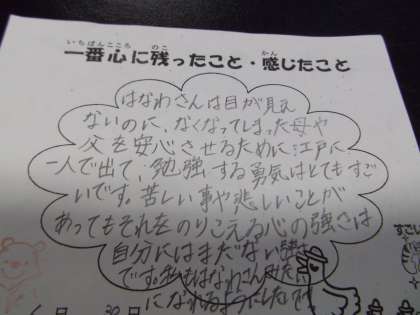 いちばんこころ のこ かん
一番心に残ったこと・感じたこと
はなわさんは目が見え
ないのに、なくなってしまった母や
父を安心させるために江戸に
一人で出て、勉強する勇気はとてもすご
いです。苦しい事や悲しいことが
あってもそれをのりこえる心の強さは
自分にはまだない
です。私もはなわさんみたい
になれるようにしたいです。
すごい
月 30日